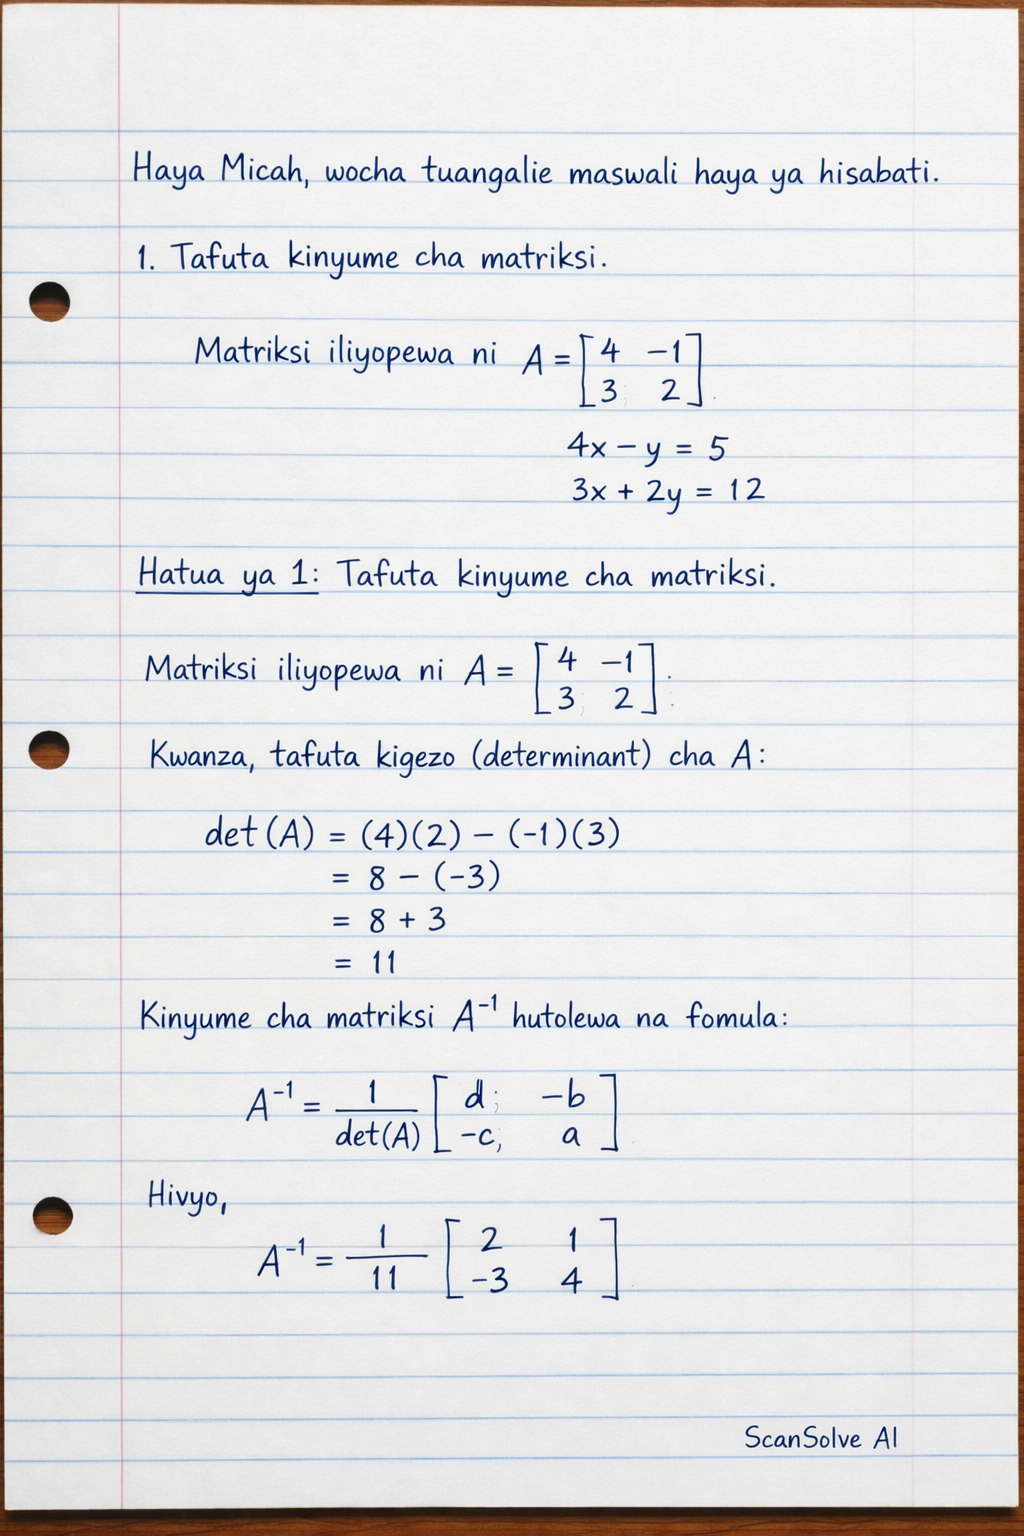 Haya Micah, wocha tuangalie maswali haya ya hisabati.
1. Tafuta kinyume cha matriksi.
Matriksi iliyopewa ni A = [4 -1
3 2]
4x - y = 5
3x + 2y = 12
Hatua ya 1: Tafuta kinyume cha matriksi.
Matriksi iliyopewa ni A = [4 -1
3 2].
Kwanza, tafuta kigezo (determinant) cha A:
det(A) = (4)(2) - (-1)(3)
= 8 - (-3)
= 8 + 3
= 11
Kinyume cha matriksi A⁻¹ hutolewa na fomula:
A⁻¹ = 1/det(A) [d; -b
-c, a]
Hivyo,
A⁻¹ = 1/11 [2 1
-3 4]
ScanSolve AI